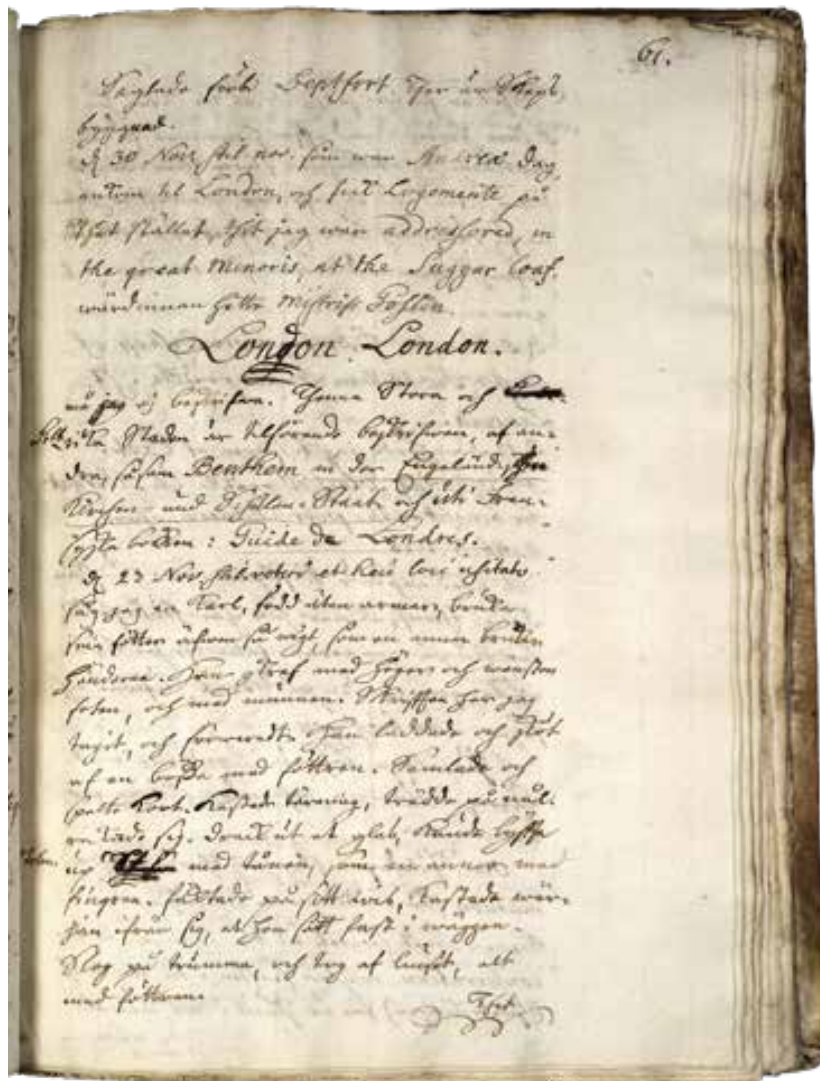 61.
Seglade förbi Deptfort ther är Skeps
byggnad.
d. 30 Nov. stil. nov. som war Andreæ dag,
ankom til London, och fick Logemente på
thet stället, thit jag war addresserad, in
the great Minoris, at the Suggar loaf.
wärdinnan hette Mistriss
London. London.
må jag ej beskrifwa. Thenna Stora och
Staden är tilförende beskrifwen, af an-
dra, såsom Benthem in der Engeländ.
Kirchen- und Schulen-Staat och uti Fran-
syska boken: Guide de Londres.
d. 23 Nov. stil. veteri et heic loci usitato
såg jag en Karl, född utan armar, bruka
sina fötter äfwen så wigt, som en annan bruka
händerna. Han skref med höger och wenster
foten, och med munnen. Skriften har jag
tagit, och förwarat. Han laddade och sköt
af en bössa med fötterna. Samlade och
spelte Kort. Kastade tärning, trädde på nål.
rakade sig. drack ut et glas, kunde lyffta
up med tånom, som en annan med
fingren. fäcktade på sitt wis, Kastade wär-
jan ifrån sig, at hon satt fast i wäggen.
Slog på trumma, och tog af liuset, alt
med fötterna.
Thet